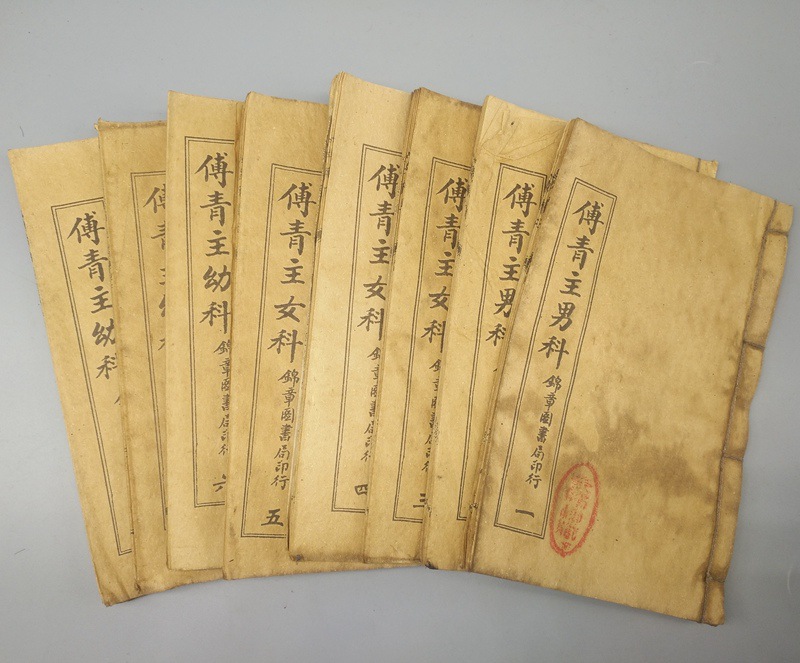 傅青主男科 錦章圖書局印行 一
傅青主男科
傅青主女科 錦章圖書局印行 三
傅青主女科 錦章圖書局印行 四
傅青主女科 錦章圖書局印行 五
傅青主幼科 錦章圖書局印行 六
傅青主幼科
傅青主幼科